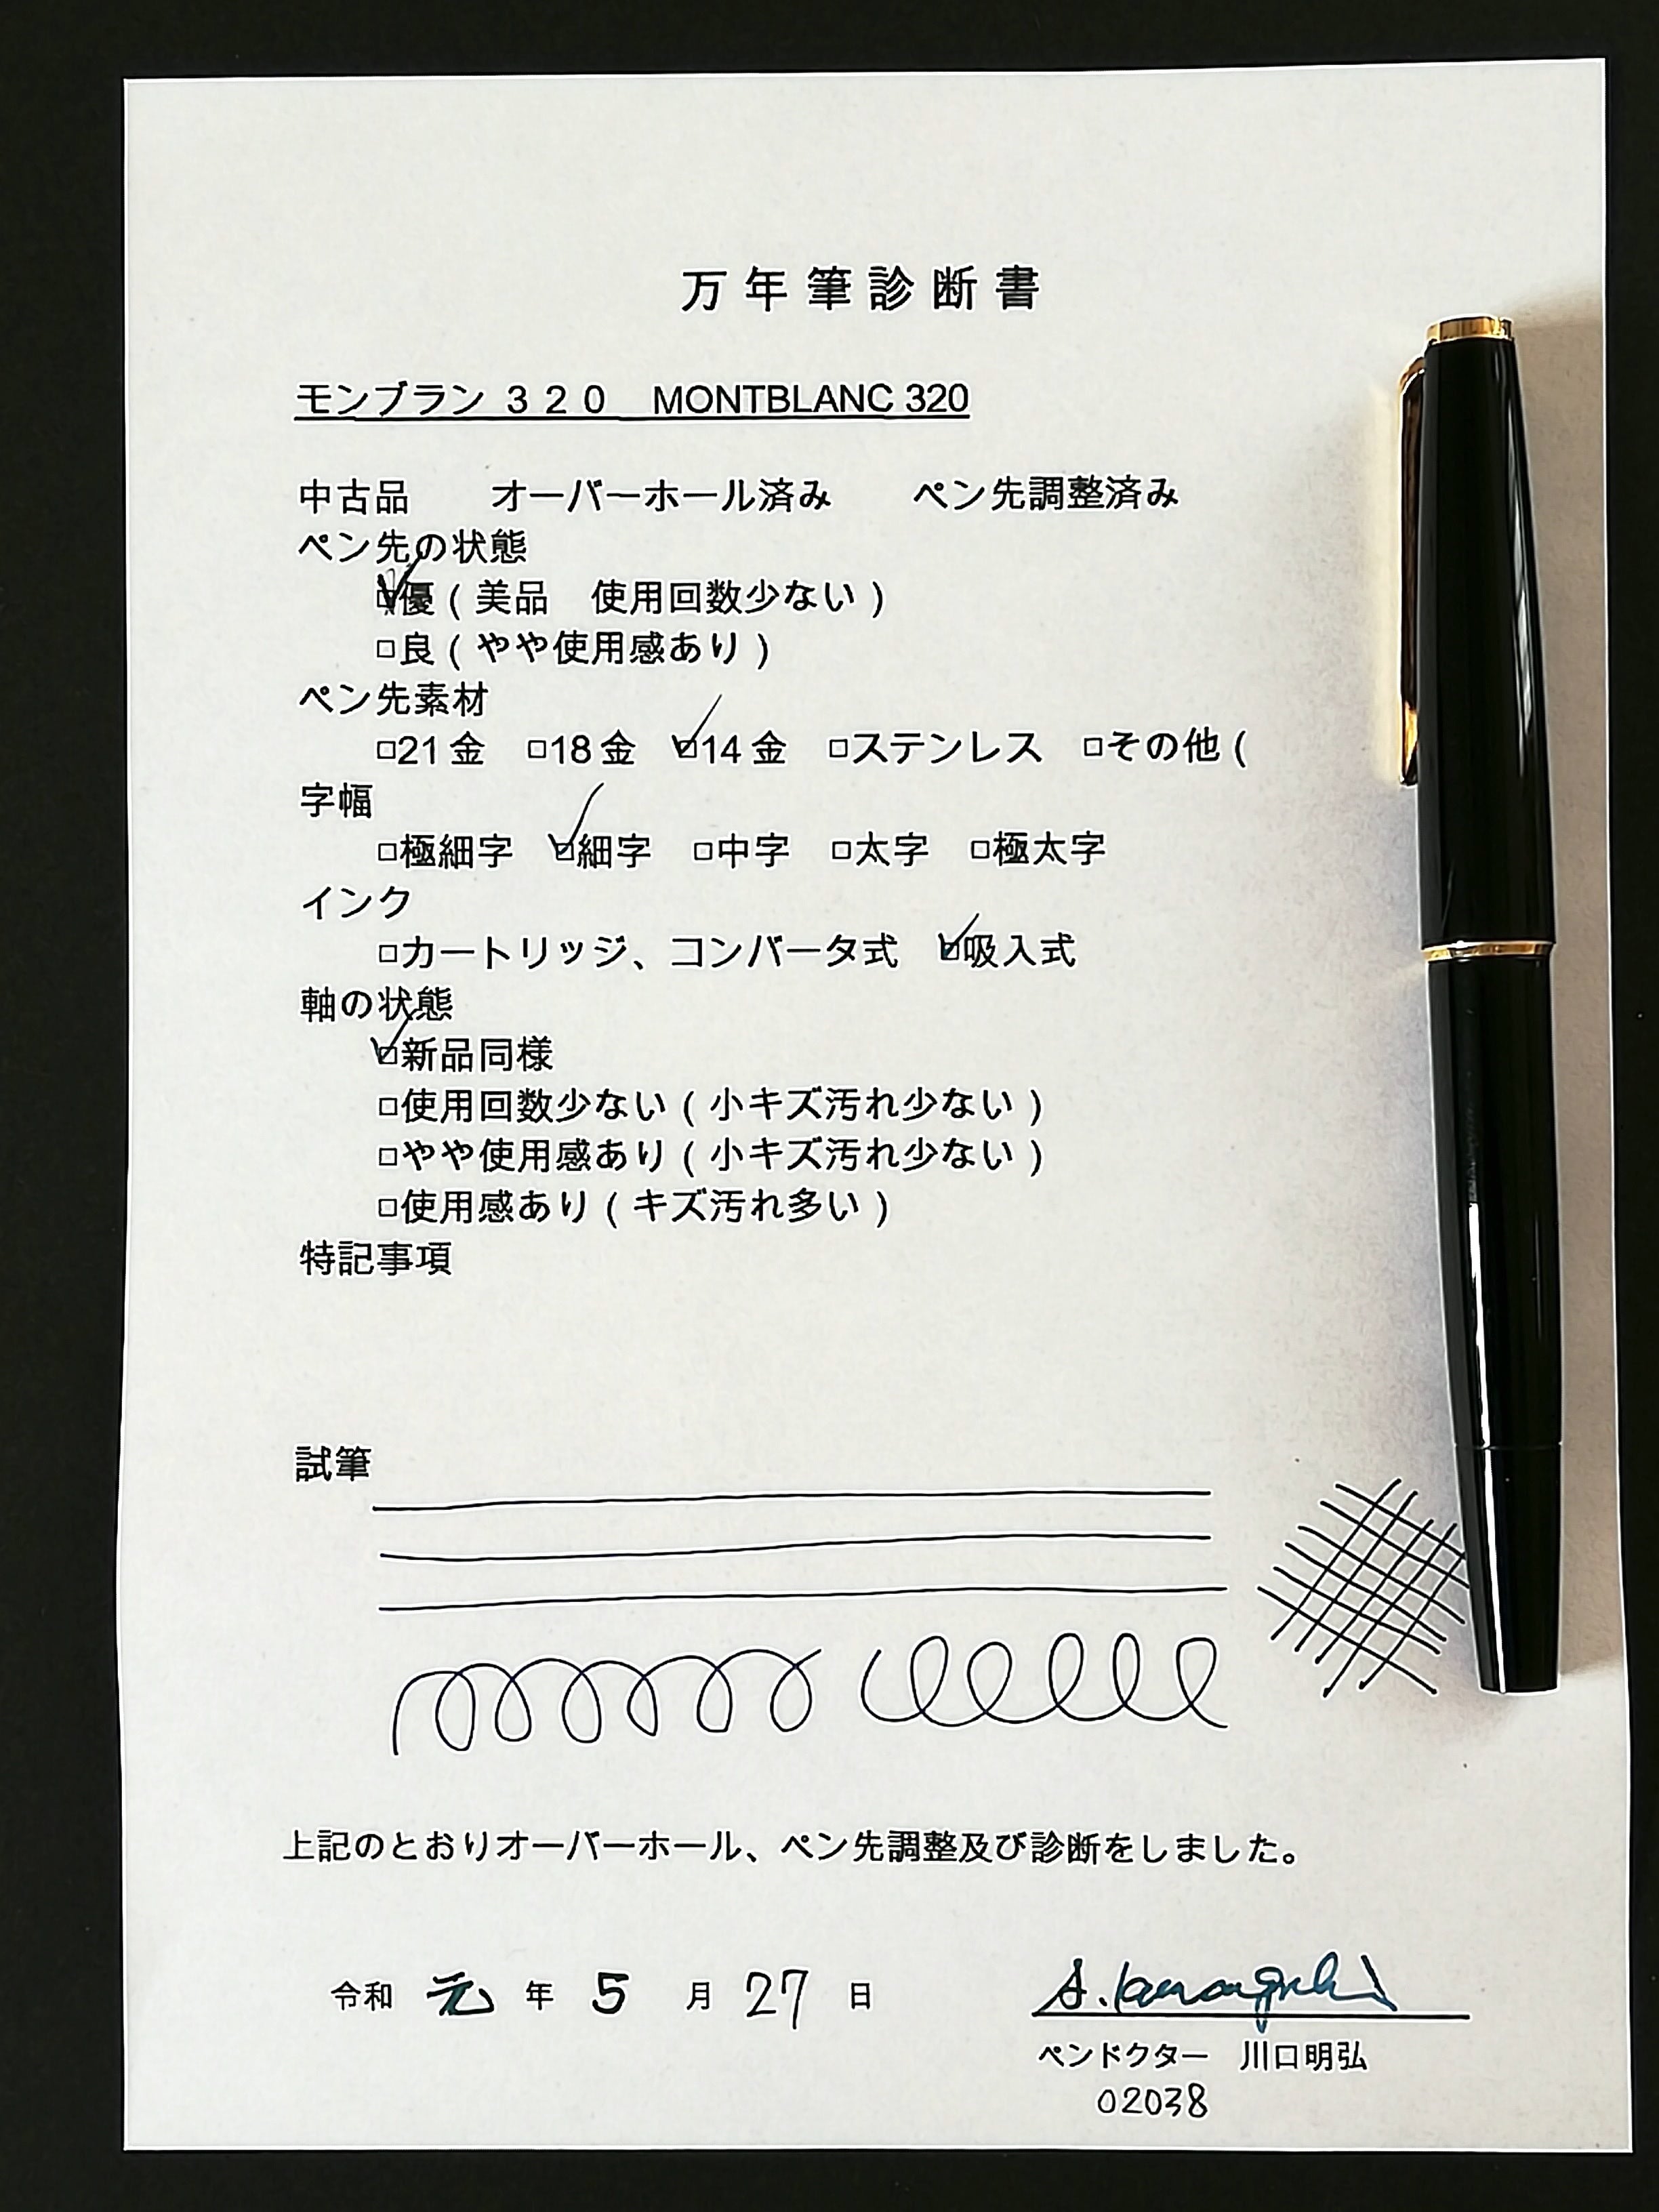 万年筆診断書
モンブラン ３２０　MONTBLANC 320
中古品　　オーバーホール済み　　ペン先調整済み
ペン先の状態
☑優（美品　使用回数少ない）
□良（やや使用感あり）
ペン先素材
□21金　□18金　☑14金　□ステンレス　□その他（
字幅
□極細字　☑細字　□中字　□太字　□極太字
インク
□カートリッジ、コンバータ式　☑吸入式
軸の状態
☑新品同様
□使用回数少ない（小キズ汚れ少ない）
□やや使用感あり（小キズ汚れ少ない）
□使用感あり（キズ汚れ多い）
特記事項
試筆
上記のとおりオーバーホール、ペン先調整及び診断をしました。
令和 元 年 5 月 27 日
A. Kawaguchi
ペンドクター　川口明弘
02038